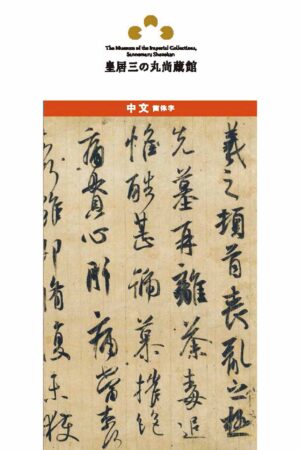 The Museum of the Imperial Collections,
Sannomaru Shozokan
皇居三の丸尚蔵館
中文 简体字
羲之頓首喪亂之極
先墓再離荼毒追
惟酷甚號慕摧絶
痛貫心肝痛當奈何
奈何雖即脩復未獲